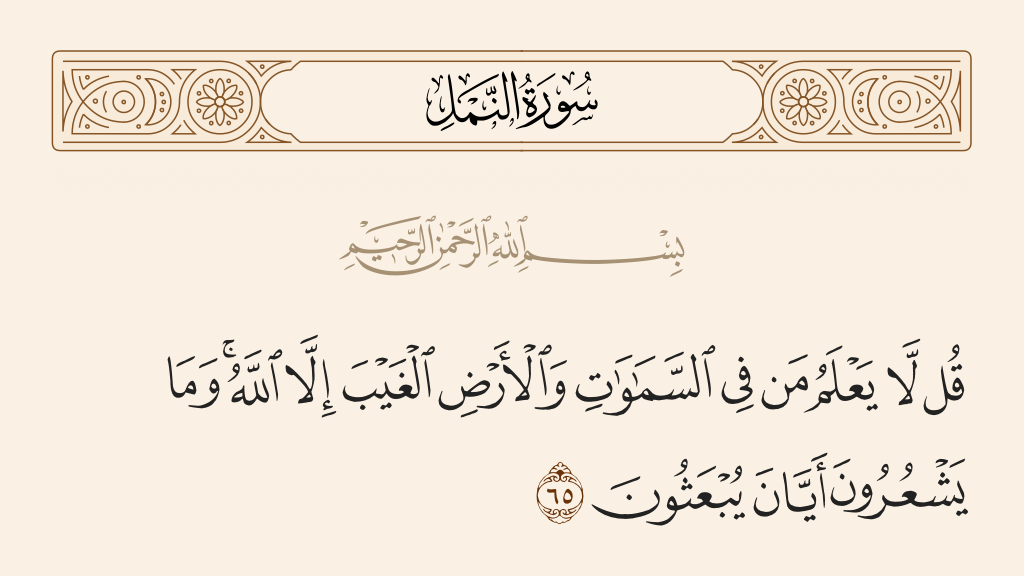 سُورَةُ النَّمۡلِ
بِسۡمِ ٱللَّهِ ٱلرَّحۡمَٰنِ ٱلرَّحِيمِ
قُل لَّا يَعۡلَمُ مَن فِي ٱلسَّمَٰوَٰتِ وَٱلۡأَرۡضِ ٱلۡغَيۡبَ إِلَّا ٱللَّهُۚ وَمَا
يَشۡعُرُونَ أَيَّانَ يُبۡعَثُونَ ٦٥